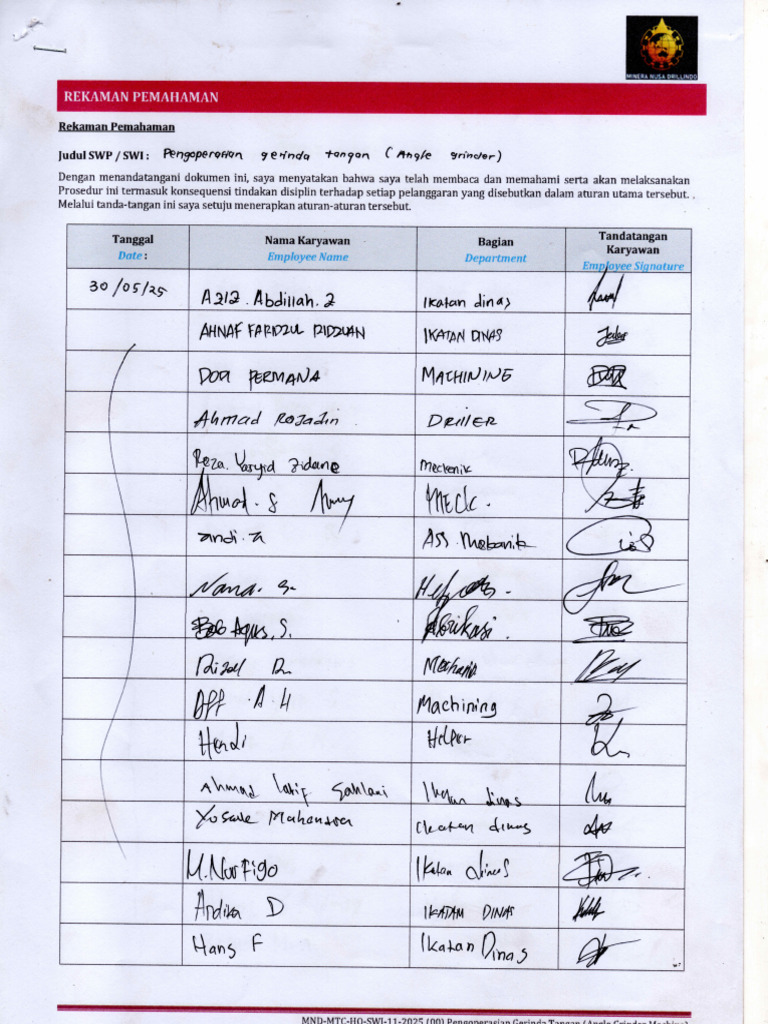 MINERA NUSA DRILLINDO
REKAMAN PEMAHAMAN
Rekaman Pemahaman
Judul SWP / SWI : Pengoperasian gerinda tangan (Angle grinder)
Dengan menandatangani dokumen ini, saya menyatakan bahwa saya telah membaca dan memahami serta akan melaksanakan
Prosedur ini termasuk konsequensi tindakan disiplin terhadap setiap pelanggaran yang disebutkan dalam aturan utama tersebut. .
Melalui tanda-tangan ini saya setuju menerapkan aturan-aturan tersebut.
Tanggal Nama Karyawan Bagian Tandatangan Karyawan
Date : Employee Name Department Employee Signature
30/05/25 Aziz. Abdillah. Z Ikatan dinas
AHNAF FARIDZUL RIDZUAN IKATAN DINAS
PERMANA MACHINING
Ahmad Rozadin DRIllER
Reza. Yasyid Zidane Meckenik
Ahmad. S MECk.
andi. a Ass. Mekanik
Nana. S.
Agus. S. Fabrikasi.
Rizal R. Mechanic
A H Machining
Hendi Helper
Ahmad latif Sahlani Ikatan dinas
Mahendra Ikatan dinas
M. Nurfigo Ikatan dinas
Andika D IKATAN DINAS
Hans F Ikatan Dinas
MND-MTC-HO-SWI-11-2025 (00) Pengoperasian Gerinda Tangan (Angle Grinder Machine)